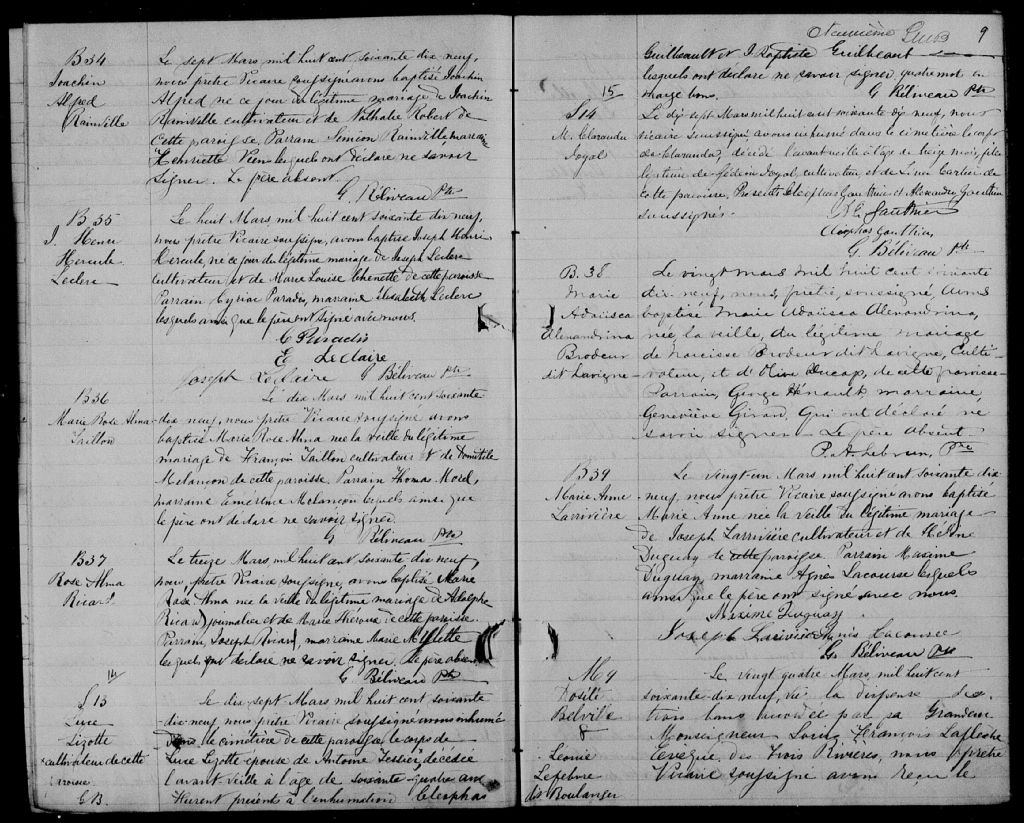 B 34
Joachin
Alfred
Rainville
Le sept Mars mil huit cent soixante dix neuf,
nous prêtre Vicaire soussigné avons baptisé Joachin
Alfred né ce jour du légitime mariage de Joachin
Rainville cultivateur et de Nathalie Robert de
cette paroisse. Parrain Siméon Rainville, marraine
Henriette Viens lesquels ont déclaré ne savoir
signer. Le père absent.
G. Béliveau Ptre
B 35
J. Henri
Hercule
Leclerc
Le huit Mars mil huit cent soixante dix neuf,
nous prêtre Vicaire soussigné, avons baptisé Joseph Henri
Hercule, né ce jour du légitime mariage de Joseph Leclerc
cultivateur et de Marie Louise Chenette de cette paroisse
Parrain Paradis, marraine Elisabeth Leclerc
lesquels ainsi que le père ont signé avec nous.
C Paradis
E Leclaire
Joseph Leclaire G Béliveau Ptre
B 36
Marie Rose Alma
Taillon
Le dix Mars mil huit cent soixante
dix neuf, nous prêtre Vicaire soussigné avons
baptisé Marie Rose Alma née la veille du légitime
mariage de François Taillon cultivateur et de Domitile
Melançon de cette paroisse. Parrain Thomas Morel,
marraine Emérence Melançon lesquels ainsi que
le père ont déclaré ne savoir signer.
G Béliveau Ptre
B 37
Rose Alma
Ricard
Le treize Mars mil huit cent soixante dix neuf,
nous, prêtre Vicaire soussigné, avons baptisé Marie
Rose Alma née la veille du légitime mariage de Adolphe
Ricard journalier et de Marie de cette paroisse.
Parrain Joseph Ricard, marraine Marie
lesquels ont déclaré ne savoir signer. Le père absent
G Béliveau Ptre
14
S 13
Luce
Lizotte
cultivateur de cette
paroisse
G B.
Le dix sept Mars mil huit cent soixante
dix neuf nous prêtre Vicaire soussigné avons inhumé
dans le cimétière de cette paroisse le corps de
Luce Lizotte épouse de Antoine Tessier décédée
l'avant veille à l'age de soixante quatre ans
Furent présents à l'inhumation Cleophas
Neuvième 9
Guilbeault et J. Baptiste Guilbeaut
lesquels ont déclaré ne savoir signer quatre mot en
marge bons.
G Béliveau Ptre
15
S 14
M. Claranda
Joyal
Le dix sept Mars mil huit cent soixante dix neuf, nous
Vicaire soussigné avons inhumé dans le cimetière le corps
de Claranda, décédé l'avant veille à l'age de treize mois, fille
légitime de Gédéon Joyal, cultivateur et de Lina Cartier de
cette paroisse, Présents Cleophas Gauthier et Alexandre Gauthier
soussignés.
Gauthier
Cleophas Gauthier
G. Béliveau Ptr
B. 38
Marie
Adaïisca
Alexandrina
Brodeur
dit Lavigne
Le vingt mars mil huit cent soixante
dix-neuf, nous, prêtre, soussigné, avons
baptisé Marie Adaïisca Alexandrina,
née, la veille, du légitime mariage
de Narcisse Brodeur dit Lavigne, Culti-
vateur, et d'Olive Ducap, de cette paroisse
Parrain, George Hénault, marraine,
Geneviève Girard, Qui ont déclaré ne
savoir signer. Le père absent.
P. A. Lebrun, Ptre
B 39
Marie Anne
Larrivière
Le vingt un Mars mil huit cent soixante dix
neuf, nous prêtre Vicaire soussigné avons baptisé
Marie Anne née la veille du légitime mariage
de Joseph Larrivière cultivateur et de
Duguay de cette paroisse Parrain Maxime
Duguay, marraine Agnès Lacourse lesquels
ainsi que le père ont signé avec nous.
Maxime Duguay
Joseph Larivière Agnis Lacourse
G. Béliveau Ptre
M 9
Dosité
Belville
&
Léonie
Lefebvre
dit Boulanger
Le vingt quatre Mars, mil huit cent
soixante dix neuf, vu la dispense de
trois bans accordé par sa Grandeur
Monseigneur Louis François Laflèche
Evèque des Trois Rivières, nous prêtre
Vicaire soussigné avons reçu le